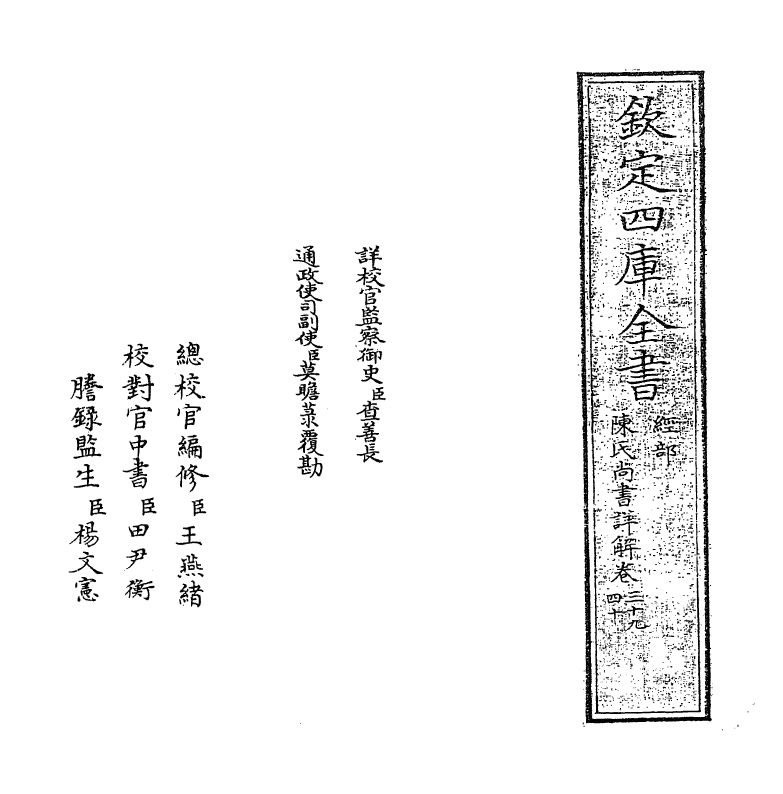 欽定四庫全書
經部
陳氏尚書詳解卷三十九
四十
詳校官監察御史臣查善長
通政使司副使臣莫瞻菉覆勘
總校官編修臣王燕緒
校對官中書臣田尹衡
謄錄監生臣楊文憲